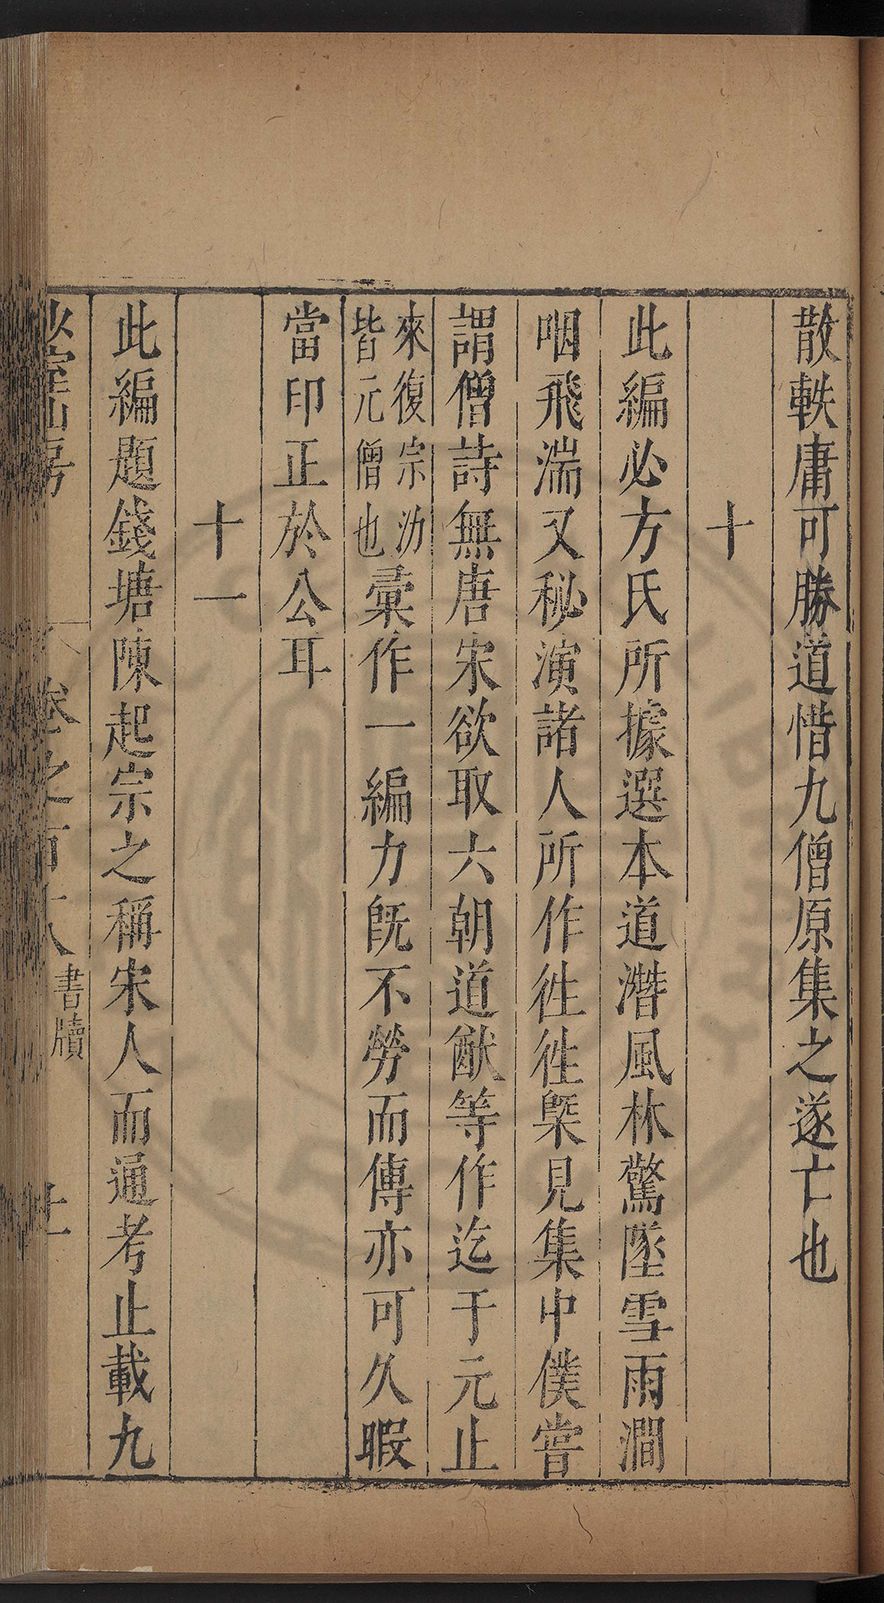 散軼庸可勝道惜九僧原集之遂亡也
十
此編必方氏所據選本道潛風林驚墜雪雨澗
咽飛湍又秘演諸人所作徃徃槩見集中僕嘗
謂僧詩無唐宋欲取六朝道猷等作迄于元止
來復宗泐
皆元僧也
彙作一編力旣不勞而傳亦可久暇
當印正於公耳
十一
此編題錢塘陳起宗之稱宋人而通考止載九
山房
卷之百十八
書牘
十一